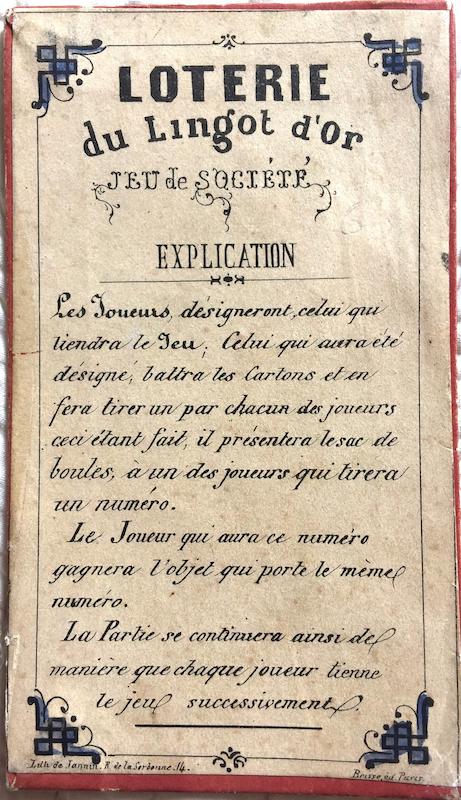 LOTERIE
du Lingot d'Or
JEU de SOCIÉTÉ
EXPLICATION
Les Joueurs, désigneront, celui qui
tiendra le Jeu; Celui qui aura été
désigné, battra les Cartons et en
fera tirer un par chacun des joueurs
ceci étant fait, il présentera le sac de
boules, à un des joueurs qui tirera
un numéro.
Le Joueur qui aura ce numéro
gagnera l'objet qui porte le même
numéro.
La Partie se continuera ainsi de
manière que chaque joueur tienne
le jeu successivement.
Lith de Jannin. R. de la Sorbonne. 14.
Brisse, éd. Paris